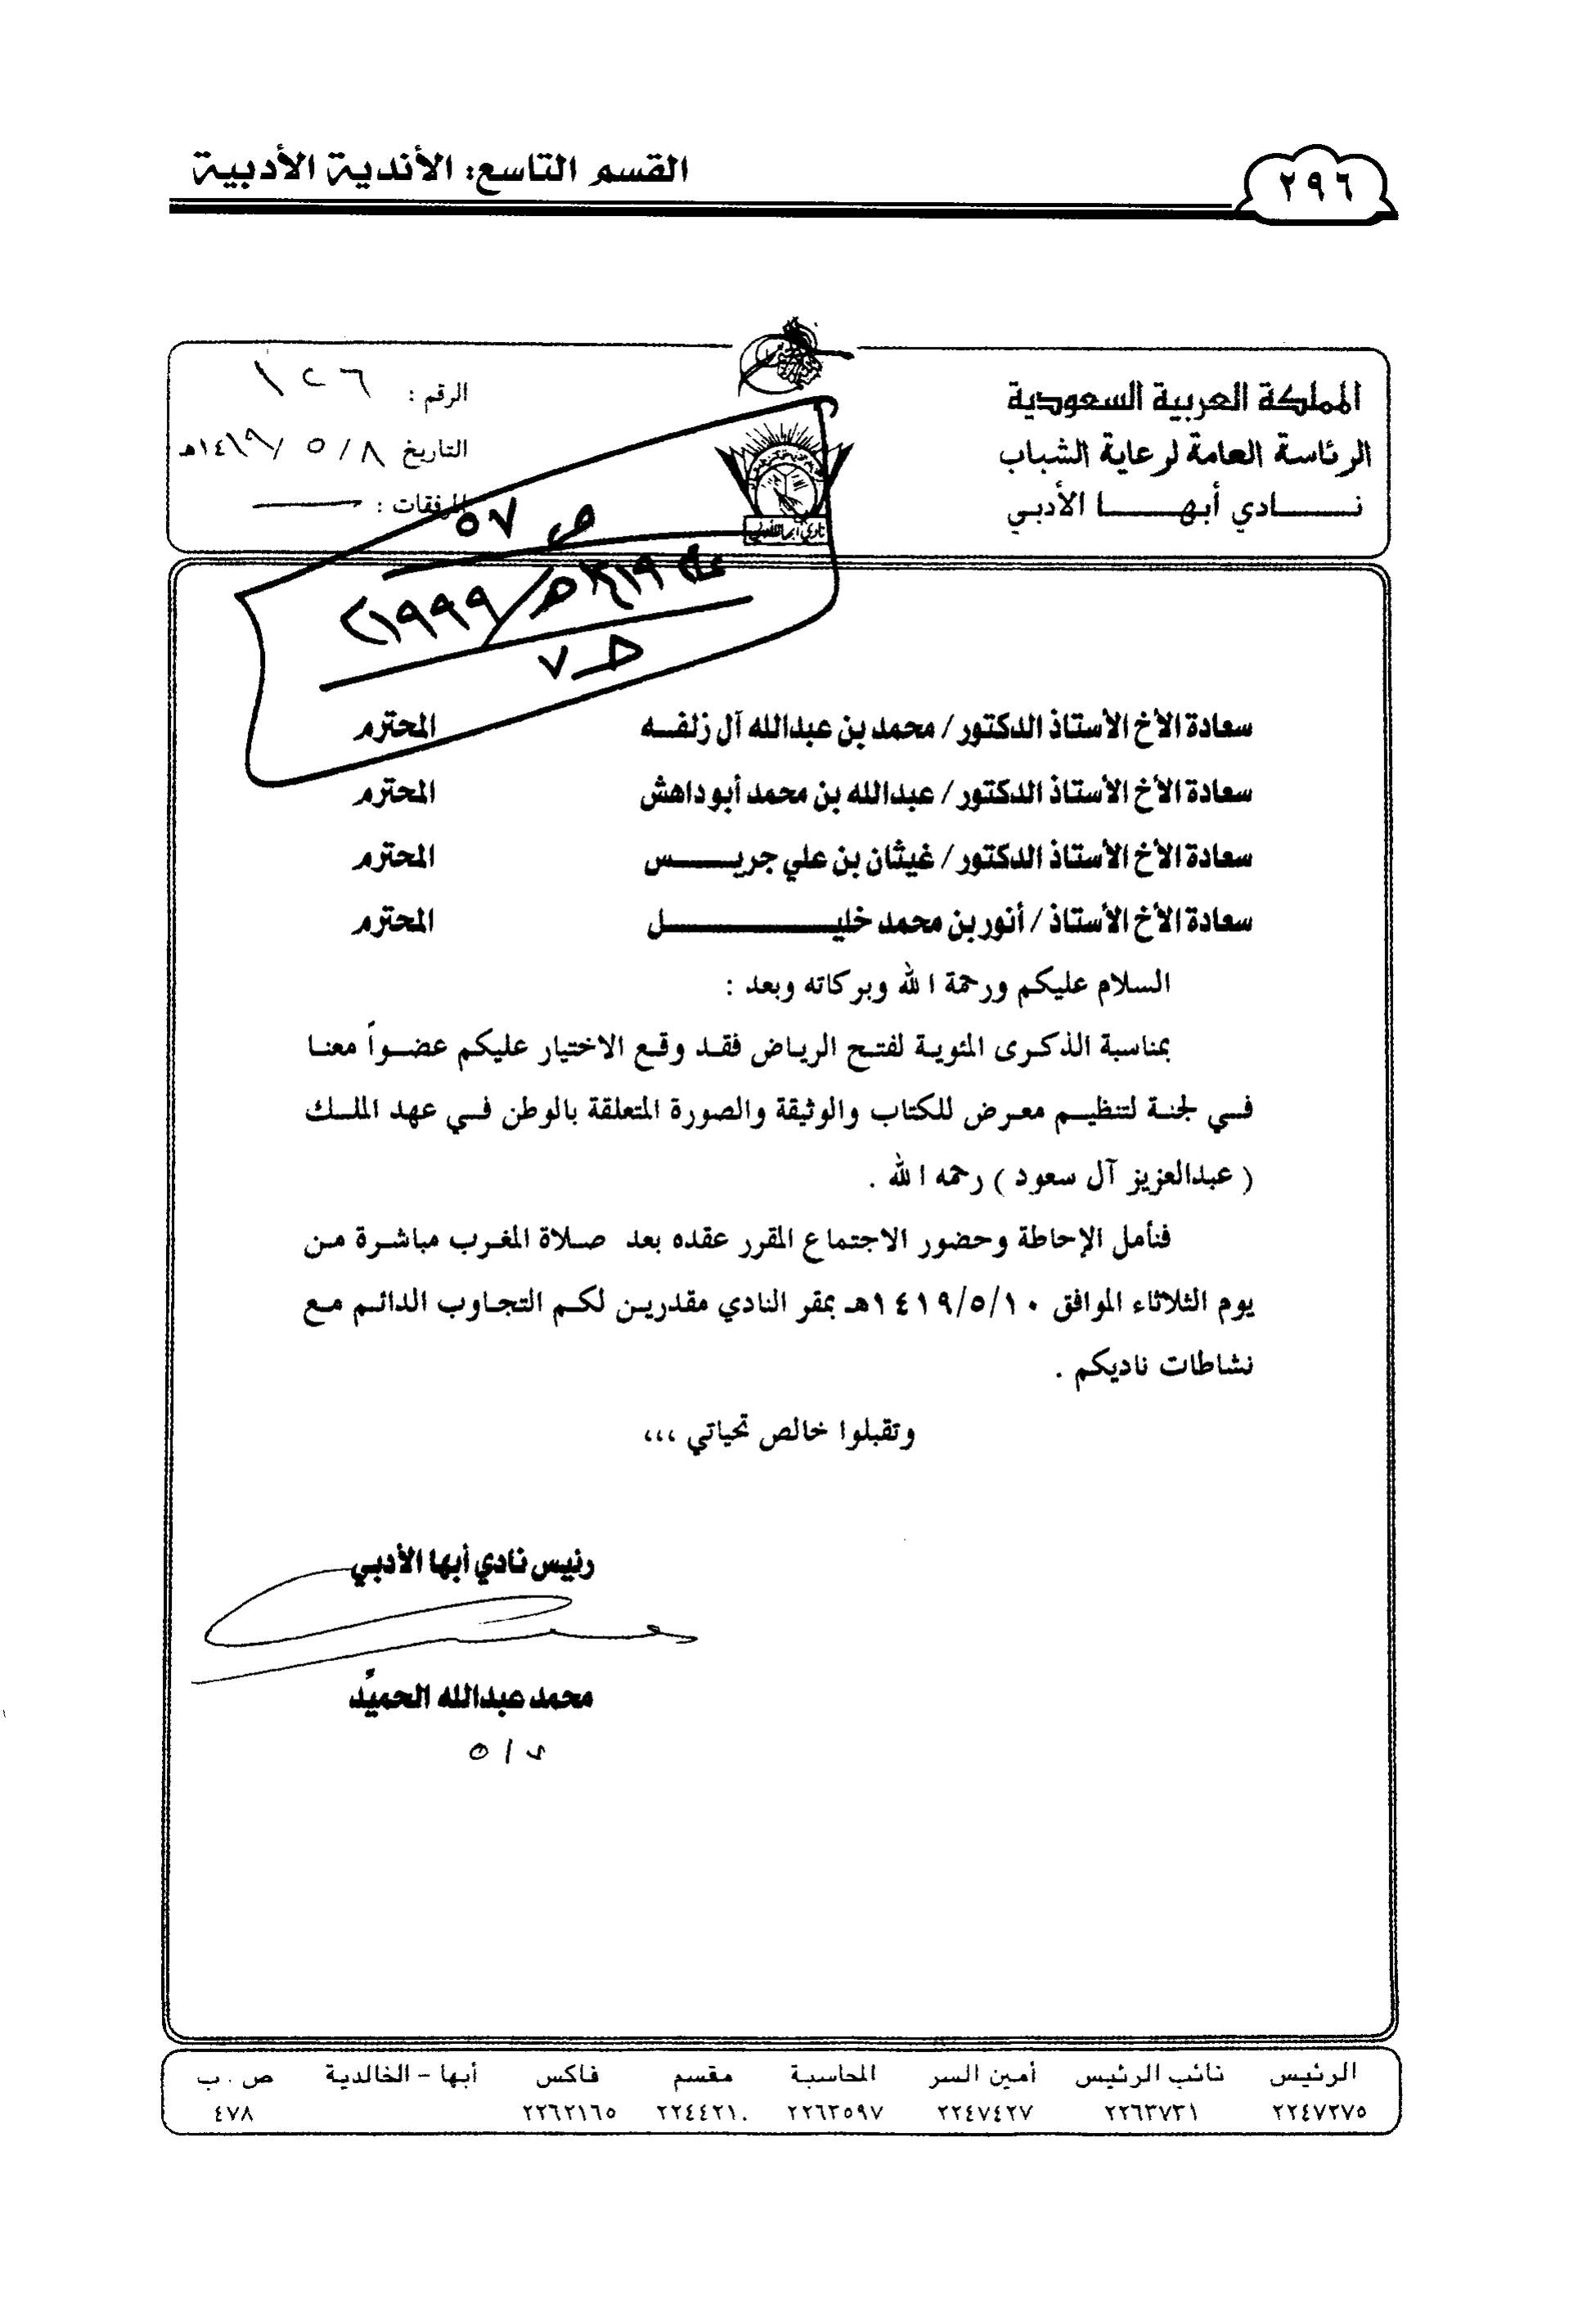 القسم التاسع: الأندية الأدبية
٢٩٦
المملكة العربية السعودية
الرئاسة العامة لرعاية الشباب
نــــادي أبهــــا الأدبي
الرقم : ١٢٦
التاريخ ٨ / ٥ / ١٤١٩هـ
المرفقات :
نادي أبها الأدبي
ص ٥٧
عام ١٤١٩هـ/١٩٩٩م
حـ٧
سعادة الأخ الأستاذ الدكتور / محمد بن عبدالله آل زلفـــه المحترم
سعادة الأخ الأستاذ الدكتور / عبدالله بن محمد أبوداهش المحترم
سعادة الأخ الأستاذ الدكتور / غيثان بن علي جريــــــس المحترم
سعادة الأخ الأستاذ / أنور بن محمد خليــــــــــــــــل المحترم
السلام عليكم ورحمة الله وبركاته وبعد :
بمناسبة الذكرى المئوية لفتح الرياض فقد وقع الاختيار عليكم عضواً معنا
في لجنة لتنظيم معرض للكتاب والوثيقة والصورة المتعلقة بالوطن في عهد الملك
( عبدالعزيز آل سعود ) رحمه الله .
فنأمل الإحاطة وحضور الاجتماع المقرر عقده بعد صلاة المغرب مباشرة من
يوم الثلاثاء الموافق ١٤١٩/٥/١٠هـ بمقر النادي مقدرين لكم التجاوب الدائم مع
نشاطات ناديكم .
وتقبلوا خالص تحياتي ،،،
رئيس نادي أبها الأدبي
محمد عبدالله الحميّد
الرئيس نائب الرئيس أمين السر المحاسبة مقسم فاكس أبها - الخالدية ص . ب
٢٢٤٧٢٧٥ ٢٢٦٣٧٣١ ٢٢٤٧٤٢٧ ٢٢٦٣٥٩٧ ٢٢٤٤٢١٠ ٢٢٦٢١٦٥ ٤٧٨